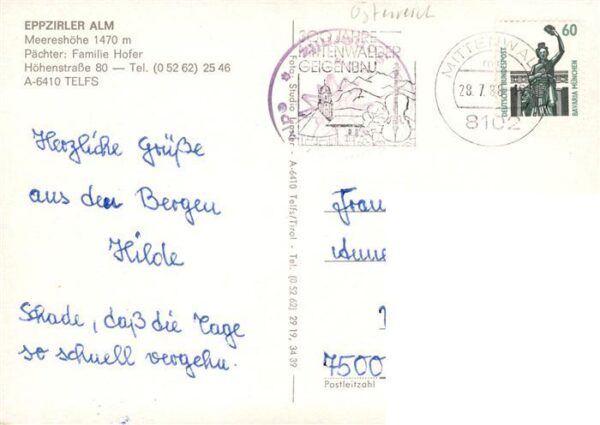 EPPZIRLER ALM
Meereshöhe 1470 m
Pächter: Familie Hofer
Höhenstraße 80 — Tel. (0 52 62) 25 46
A-6410 TELFS
Österreich
300 JAHRE
MITTENWALDER
GEIGENBAU
MITTENWAL
28.7.88
8102
60
DEUTSCHE BUNDESPOST
BAVARIA MÜNCHEN
Herzliche Grüße
aus den Bergen
Hilde
Schade, daß die Tage
so schnell vergehn.
Foto Studio
A-6410 Telfs/Tirol - Tel. (0 52 62) 29 19, 34 39
Frau
Anne
7500
Postleitzahl